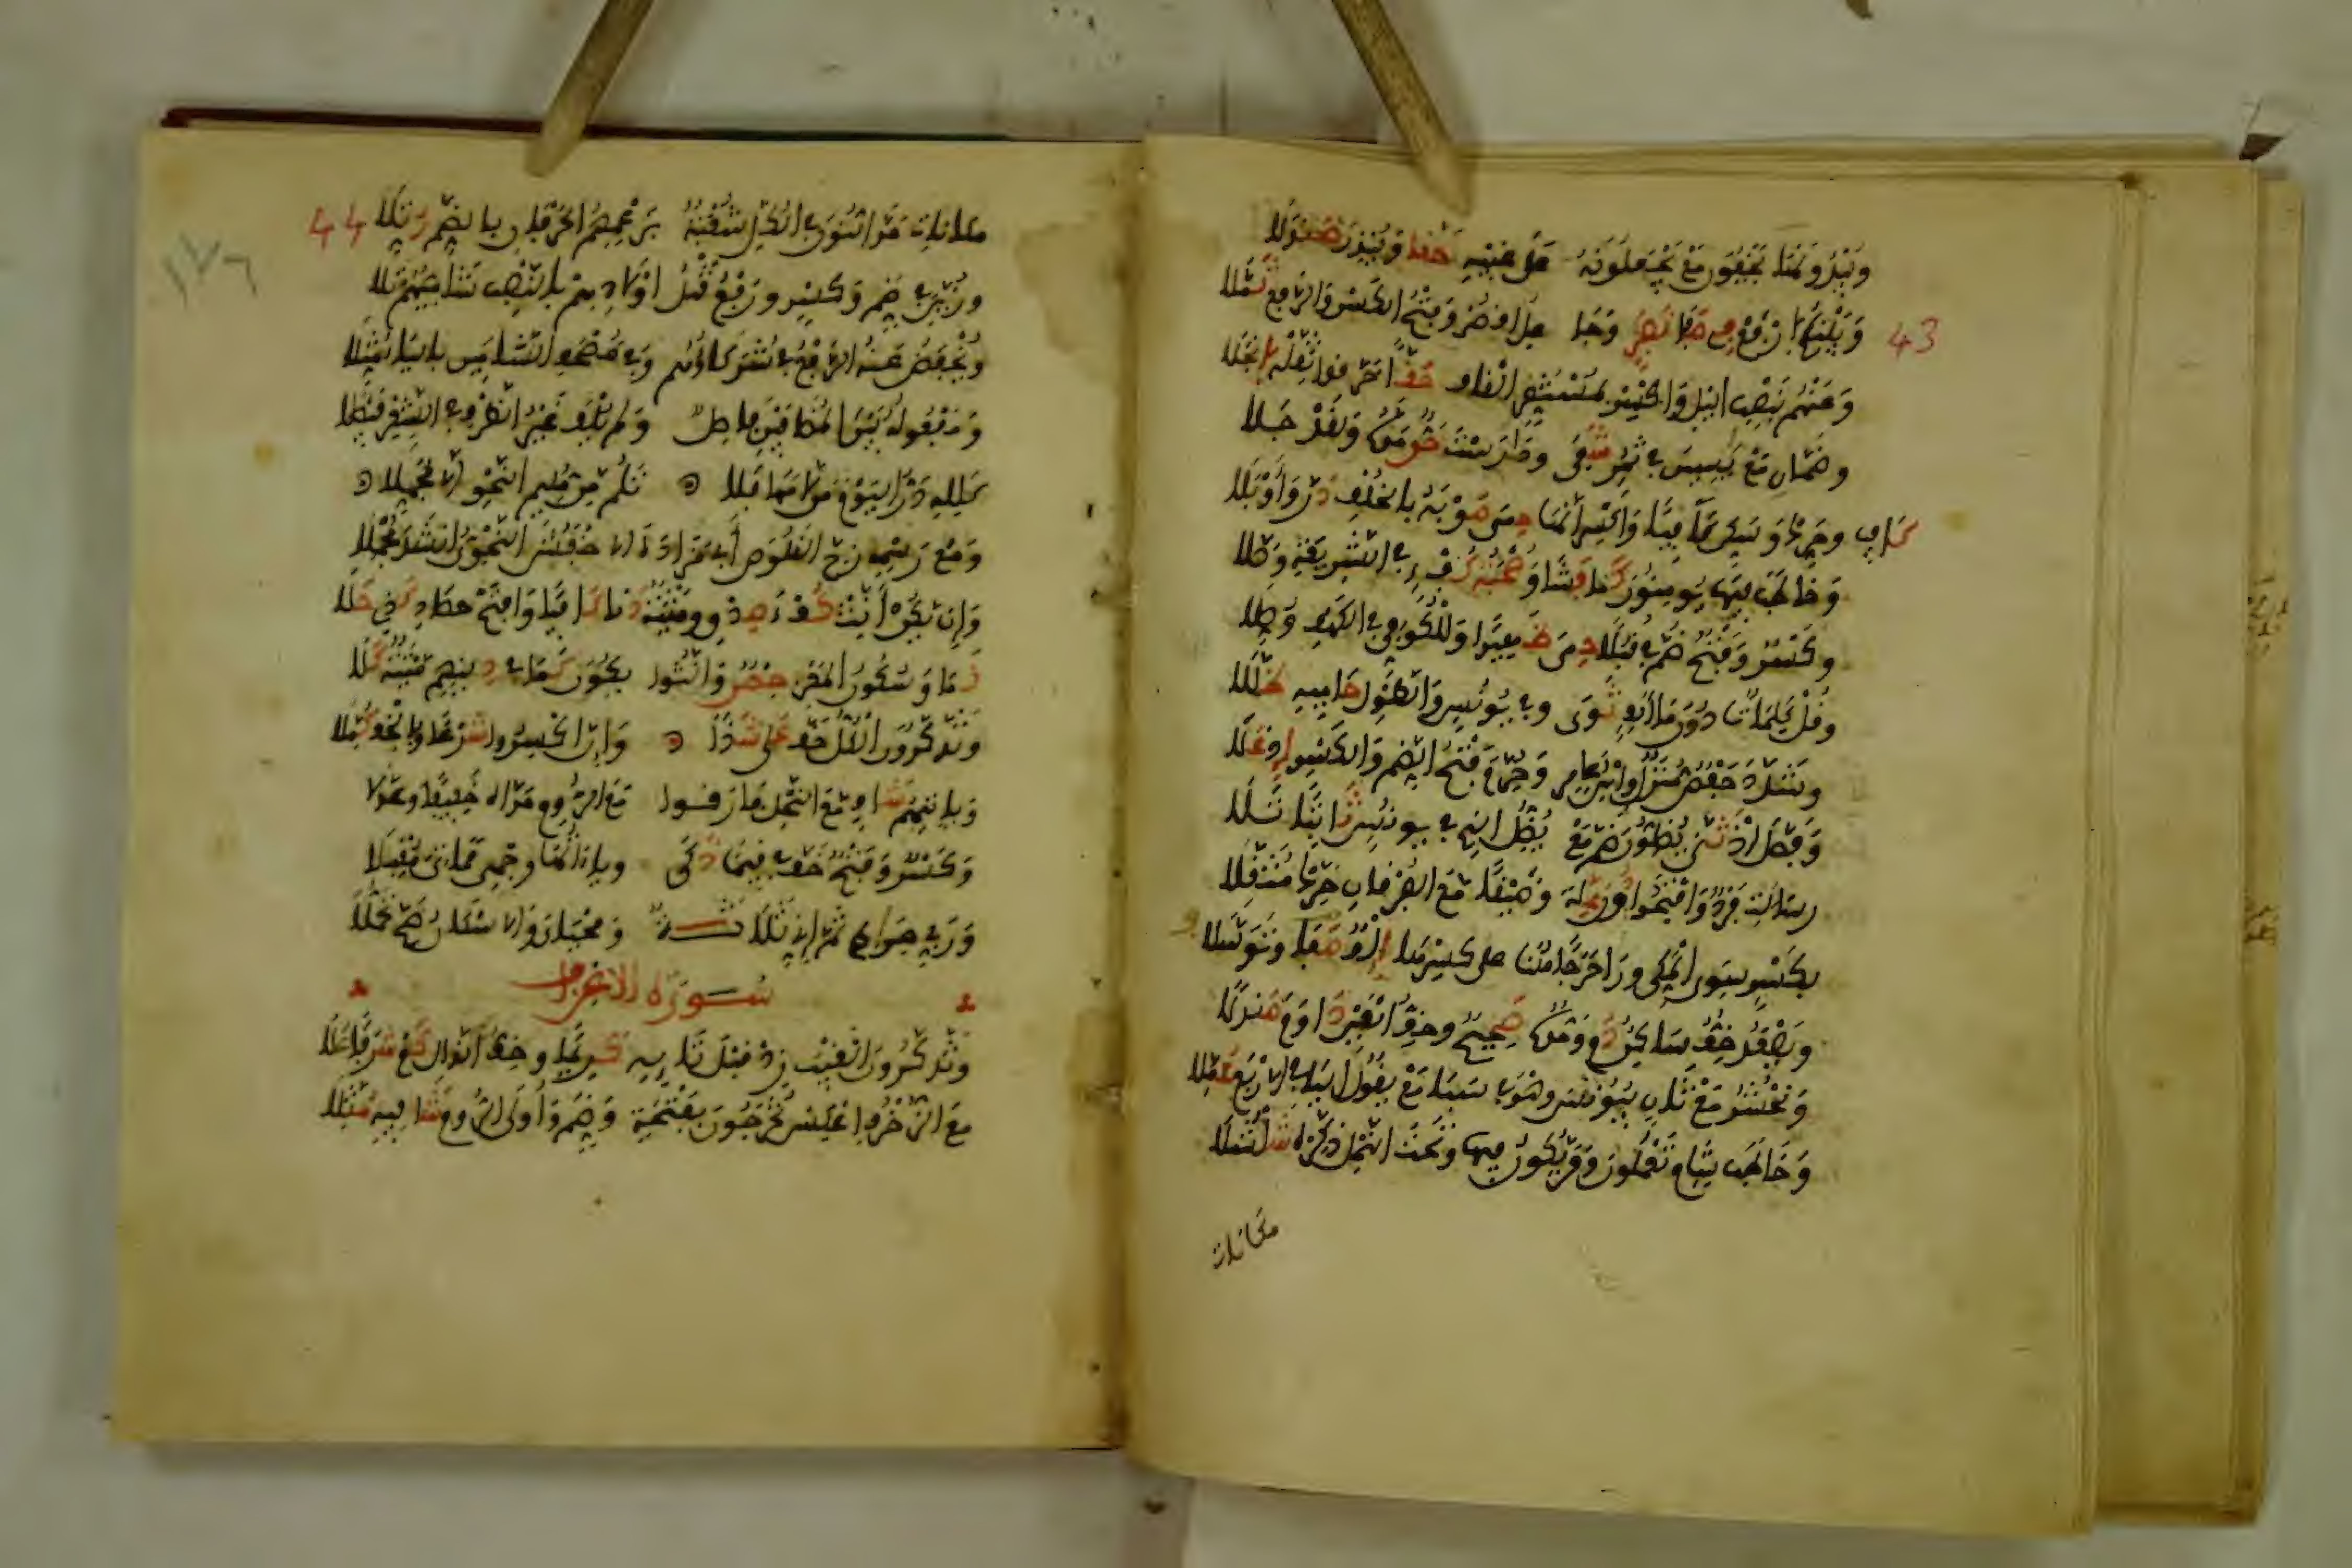 وتبدونها تخفون مع تجعلونه على غيبه حقا وينذر صندلا
43 وبينكم ارفع في صفا نفر وجاعل اقصر وفتح الكسر والرفع ثملا
وعنهم بنصب اليل واكسر بمستقر القاف حقا خرقوا ثقله انجلا
وضمان مع يسين في ثمر شفى ودارست حق مده ولقد حلا
وحرك وسكن كافيا واكسر انها حمى صوبه بالخلف در وأوبلا
وخاطب فيها يومنون كما فشا وصحبة كفء في الشريعة وصلا
وكسر وفتح ضم في قبلا حمى ظهيرا وللكوفي في الكهف وصلا
وقل كلمات دون ما الف ثوى وفي يونس والطول حاميه ظللا
وشدد حفص منزل وابن عامر وحرم فتح الضم والكسر إذ علا
وفصل إذ ثنى يضلون ضم مع يضلوا الذي في يونس ثابتا
رسالات فرد وافتحوا دون علة وضيقا مع الفرقان حرك مثقلا
بكسر سوى المكي ورا حرجا هنا على كسرها إلف صفا وتوسلا
ويصعد خف ساكن دم ومده صحيح وخف العين داوم صندلا
ونحشر مع ثان بيونس وهو في سبا مع يقول اليا في الاربع عملا
وخاطب شام تعملون ومن يكون فيها وتحت النمل ذكره شلشلا
مكانات
44
١٧٦
مكانات مد النون في الكل شعبة بزعمهم الحرفان بالضم رتلا
وزين في ضم وكسر ورفع قتل اولادهم بالنصب شاميهم تلا
ويخفض عنه الرفع في شركاؤهم وفي مصحف الشامين بالياء مثلا
ومفعوله بين المضافين فاصل ولم يلف غير الظرف في الشعر فيصلا
كلله در اليوم من لامها فلا تلم من مليم النحو الا مجهلا
ومع رسمه زج القلوص أبي مزادة الاخفش النحوي انشد مجملا
وإن تكن أنث كفء صدق وميتة دنا كافيا وافتح حصاد كذي حلا
نما وسكون المعز حصن وانثوا يكون كما في دينهم ميتة كلا
وتذكرون الكل خف على شذا وان اكسروا شرعا وبالخف كملا
وياتيهم شاف مع النحل فارقوا مع الروم مداه خفيفا وعدلا
وكسر وفتح خف في قيما ذكى وياءاتها وجهي مماتي مقبلا
وربي صراطي ثم إني ثلاثة ومحياي والاسكان صح تحملا
سورة الاعراف
وتذكرون الغيب زد قبل تايه كريما وخف الذال كم شرفا علا
مع الزخرف اعكس تخرجون بفتحة وضم وأولى الروم شافيه مثلا